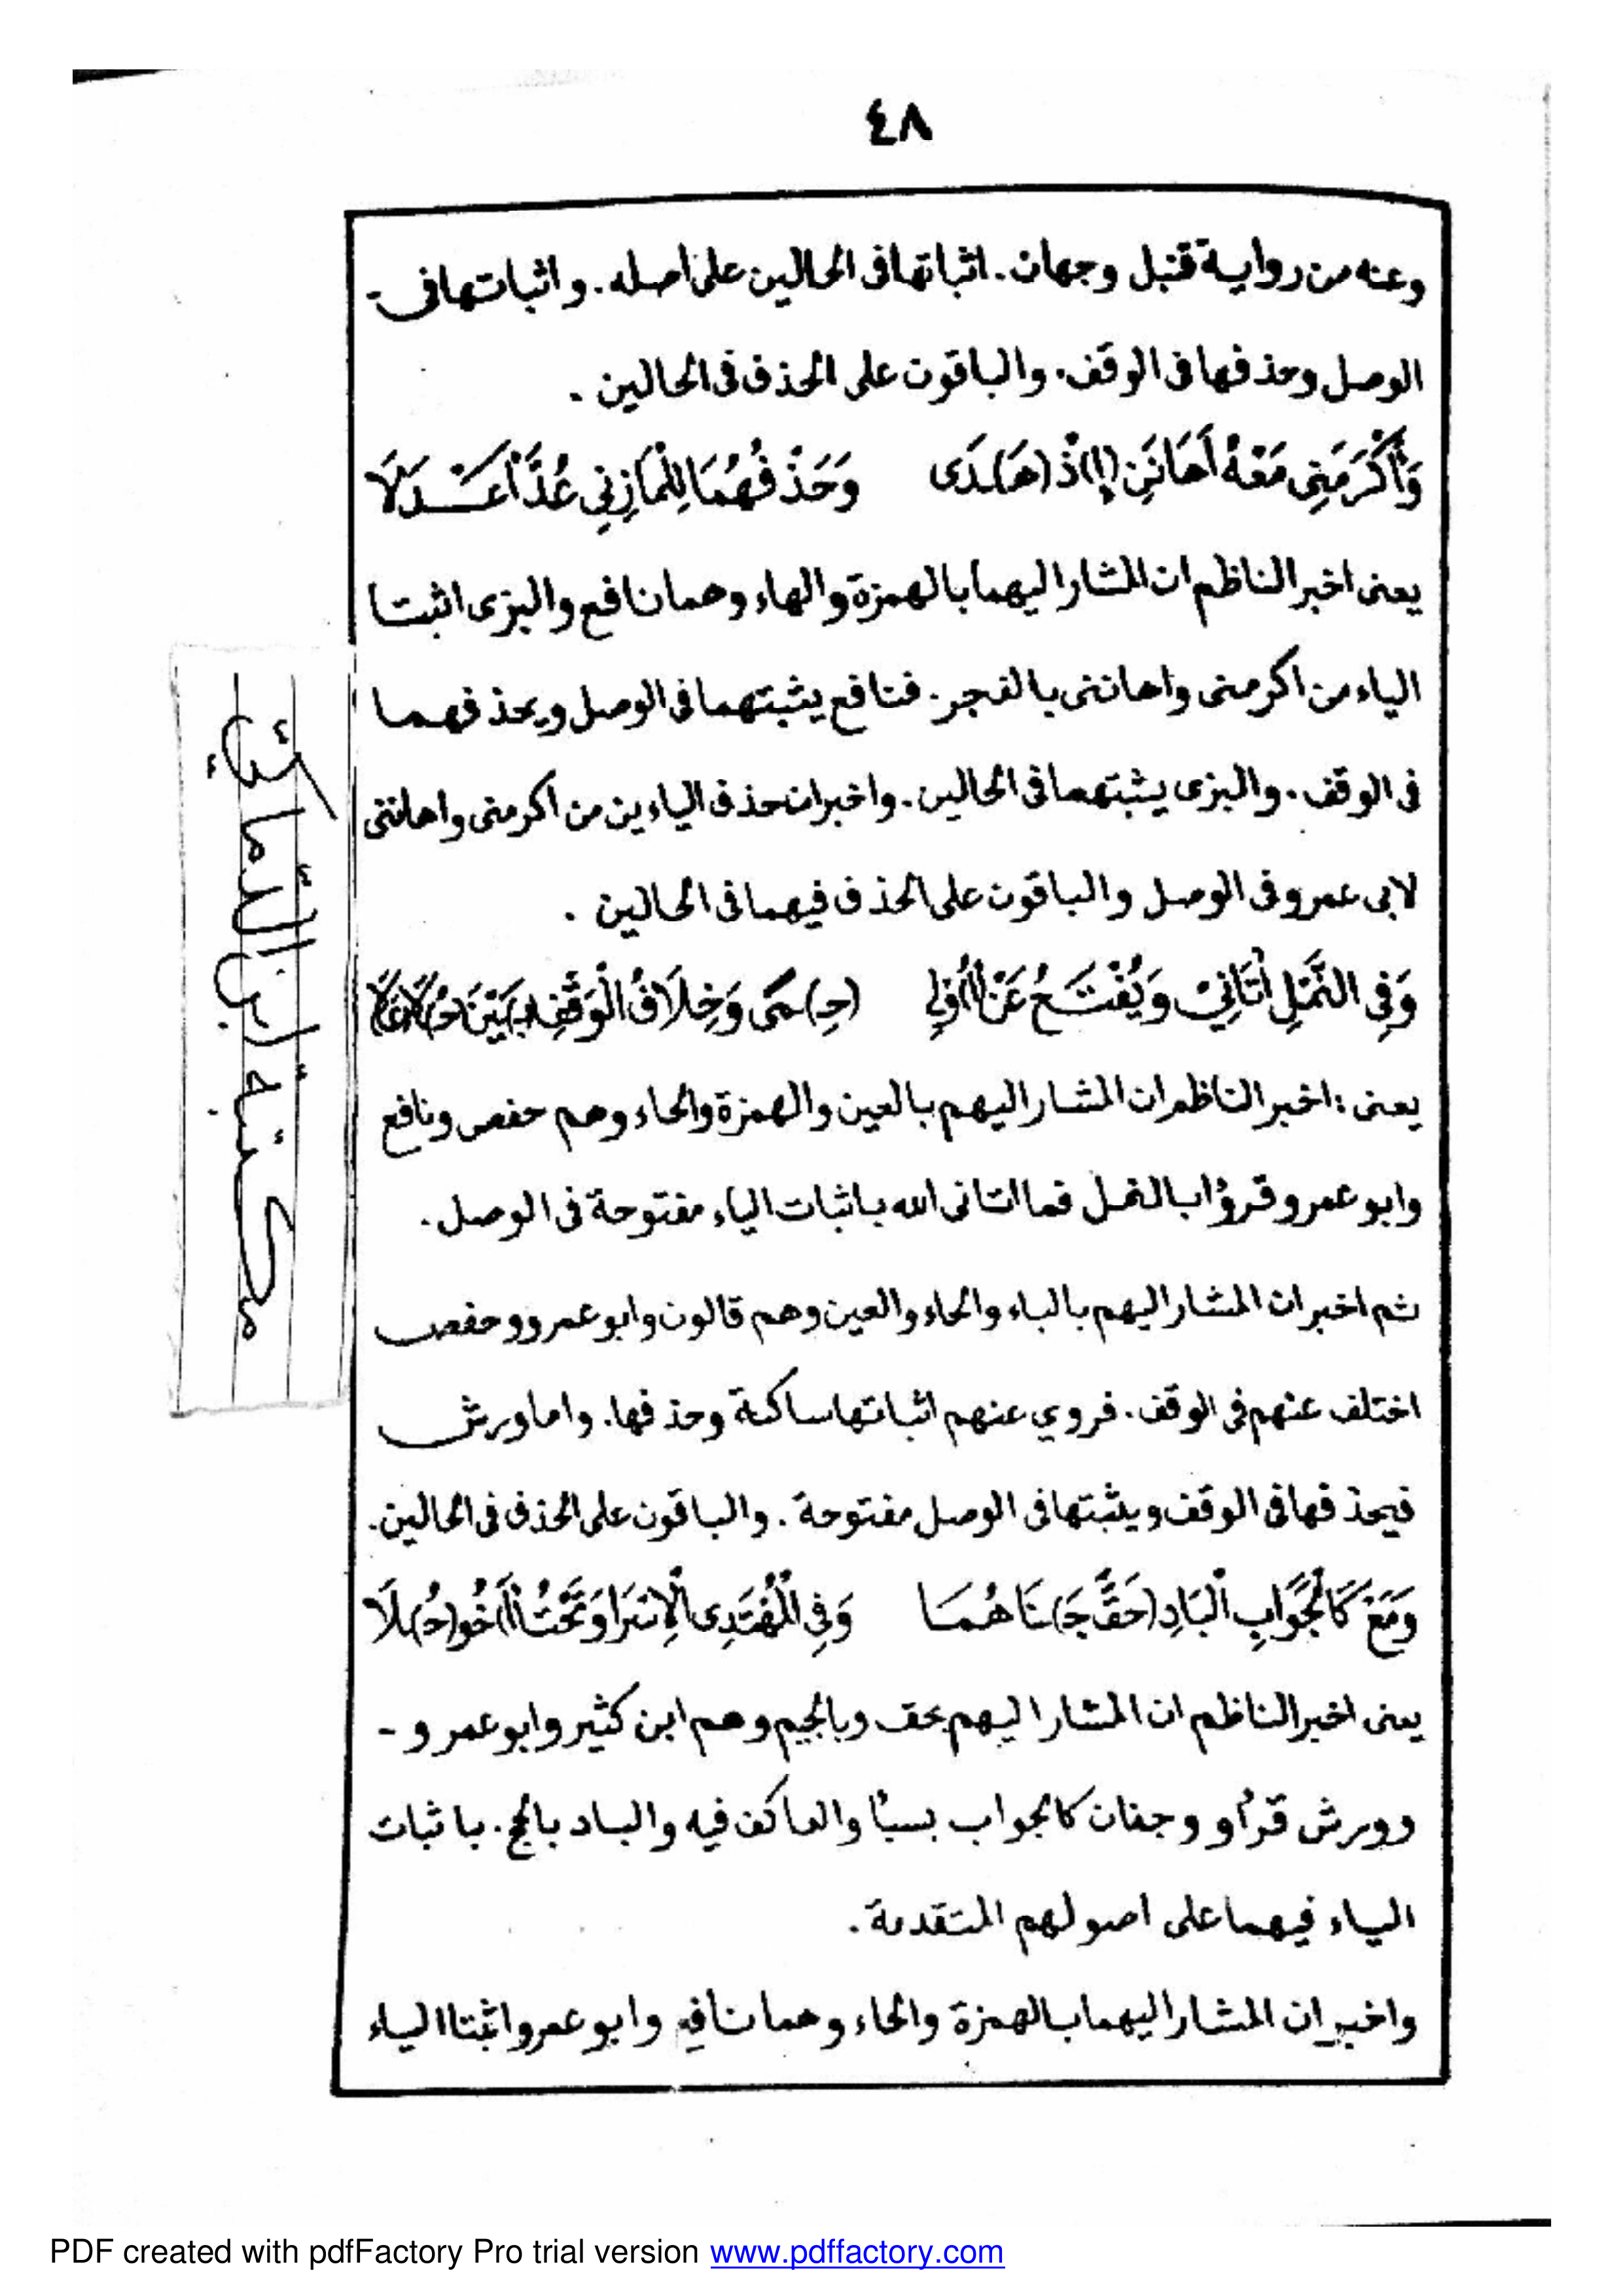 ٤٨
وعنه من رواية قنبل وجهان. اثباتها فى الحالين على اصله. واثباتها فى -
الوصل وحذفها فى الوقف. والباقون على الحذف فى الحالين.
وَأَكْرَمَنِى مَعْهُ أَهَانَنِ (إِ)ذْ (هَـ)ـدَى وَحَذْفُهُمَا لِلْمَازِنِي عُدَّ أَعْـدَلَا
يعنى اخبر الناظم ان المشار اليهما بالهمزة والهاء وهما نافع والبزى اثبتا
الياء من اكرمنى واهاننى بالفجر. فنافع يثبتهما فى الوصل ويحذفهما
فى الوقف. والبزى يثبتهما فى الحالين. واخبر ان حذف الياءين من اكرمنى واهاننى
لابى عمرو فى الوصل والباقون على الحذف فيهما فى الحالين.
وَفِى النَّمْلِ أَتَانِيْ وَيُفْتَـحُ عَنْ (أُ)ولِي (حِـ)ـمًى وَخِلَافُ الْوَقْفِ (بَـ)ـيْنَ (حُـ)ـلًا (عَـ)ـلَا
يعنى: اخبر الناظم ان المشار اليهم بالعين والهمزة والحاء وهم حفص ونافع
وابو عمرو قرؤا بالنمل فما اتانى الله باثبات الياء مفتوحة فى الوصل.
ثم اخبر ان المشار اليهم بالباء والحاء والعين وهم قالون وابو عمرو وحفص
اختلف عنهم فى الوقف. فروي عنهم اثباتها ساكنة وحذفها. واما ورش
فيحذفها فى الوقف ويثبتها فى الوصل مفتوحة. والباقون على الحذف فى الحالين.
وَمَعْ كَالْجَوَابِ الْبَادِ (حَقَّ جَـ)ـنَاهُمَـا وَفِى الْمُهْتَدِى الْإِسْرَا وَتَحْتُ (أَ)خُو (حُـ)ـلَا
يعنى اخبر الناظم ان المشار اليهم بحق وبالجيم وهم ابن كثير وابو عمرو -
وورش قرأوا وجفان كالجواب بسبأ والعاكف فيه والباد بالحج. باثبات
الياء فيهما على اصولهم المتقدمة.
واخبر ان المشار اليهما بالهمزة والحاء وهما نافع وابو عمرو اثبتا الياء
مكتبة ابن الدماكي
PDF created with pdfFactory Pro trial version www.pdffactory.com